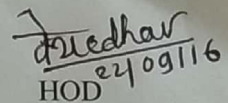 22/09/16
HOD